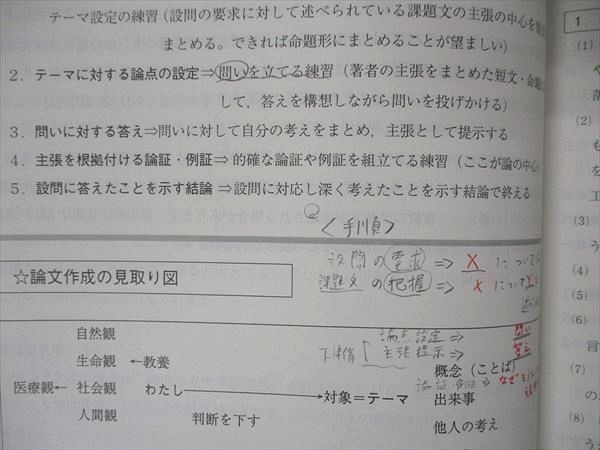 テーマ設定の練習（設問の要求に対して述べられている課題文の主張の中心を
まとめる。できれば命題形にまとめることが望ましい）
2．テーマに対する論点の設定⇒問いを立てる練習（著者の主張をまとめた短文・命題
して，答えを構想しながら問いを投げかける）
3．問いに対する答え⇒問いに対して自分の考えをまとめ，主張として提示する
4．主張を根拠付ける論証・例証⇒的確な論証や例証を組立てる練習（ここが論の中心
5．設問に答えたことを示す結論⇒設問に対応し深く考えたことを示す結論で終える
〈手順〉
設問の要求 ⇒ Xについて
課題文の把握 ⇒ Xについて
☆論文作成の見取り図
論点設定 ⇒ 問い
下準備 主張提示 ⇒ 答え
論証・例証 ⇒ なぜ
自然観
生命観 ←教養
医療観← 社会観 わたし →対象＝テーマ
人間観 判断を下す
概念（ことば）
出来事
他人の考え
1
(1)
や
落
(2)
も
(3)
う
(4)
(5)
(6)
言
(7)
の
(8)